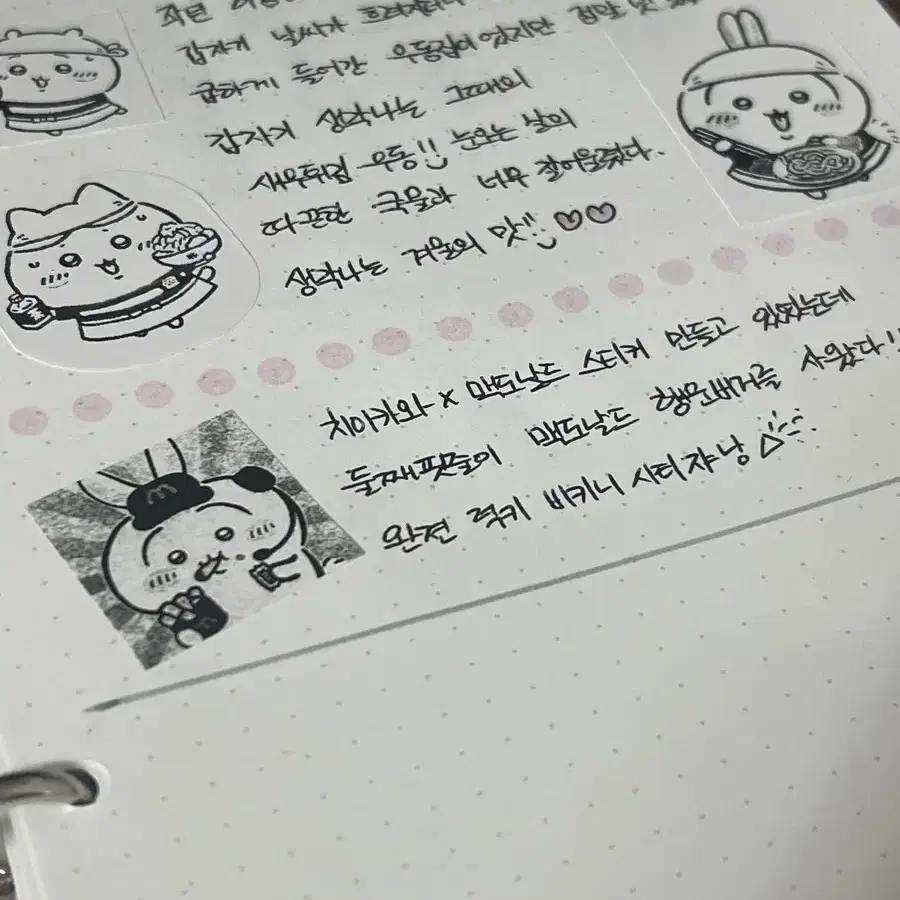 작년
갑자기 날씨가 흐려지더니
급하게 들어간 우동집이었지만 정말 맛
갑자기 생각나는 그때의
새우튀김 우동!! 눈오는 날의
따끈한 국물과 너무 잘어울렸다.
생각나는 겨울의 맛!! ♡♡
치이카와 x 맥도날드 스티커 만들고 있었는데
둘째핏줄이 맥도날드 행운버거를 사왔다!!
완전 럭키 비키니시티쟈낭